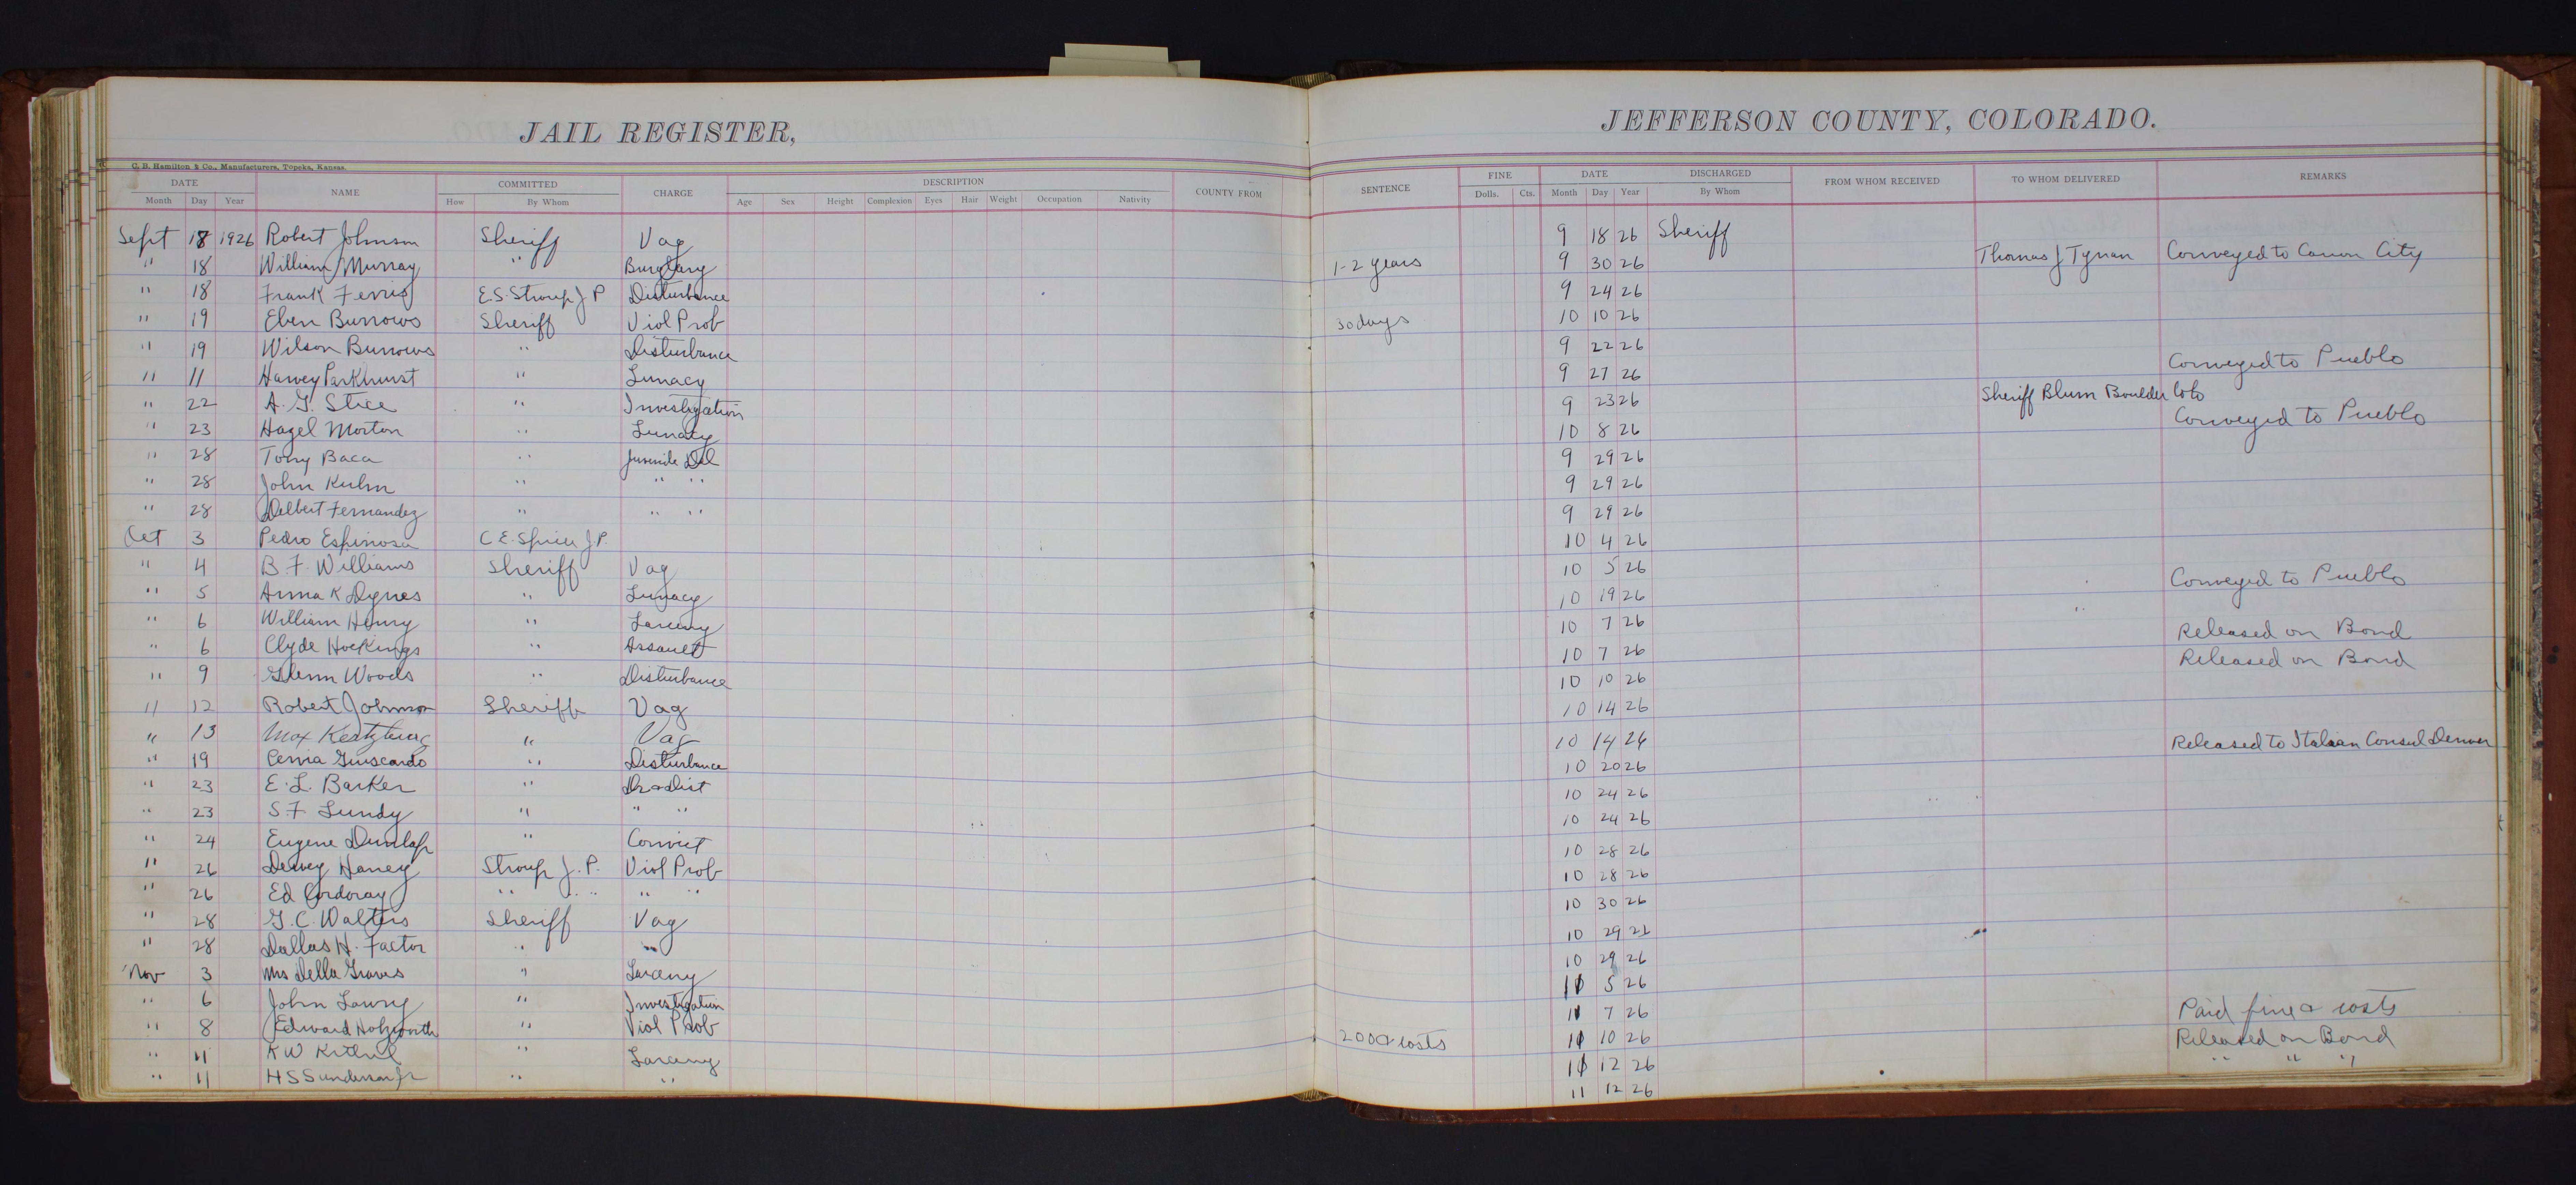 JAIL REGISTER,
JEFFERSON COUNTY, COLORADO.
C. B. Hamilton & Co., Manufacturers, Topeka, Kansas.
DATE NAME COMMITTED CHARGE DESCRIPTION COUNTY FROM SENTENCE FINE DATE DISCHARGED FROM WHOM RECEIVED TO WHOM DELIVERED REMARKS
Month Day Year How By Whom Age Sex Height Complexion Eyes Hair Weight Occupation Nativity Dolls. Cts. Month Day Year By Whom
Sept 18 1926 Robert Johnson Sheriff Vag 9 18 26 Sheriff
" 18 William Murray " Burglary 1-2 years 9 30 26 Thomas J Tynan Conveyed to Canon City
" 18 Frank Ferris E.S. Stroup J P Disturbance 9 24 26
" 19 Eben Burrows Sheriff Viol Prob 30 days 10 10 26
" 19 Wilson Burrows " Disturbance 9 22 26
" 11 Harvey Parkhurst " Lunacy 9 27 26 Conveyed to Pueblo
" 22 A. G. Stice " Investigation 9 23 26 Sheriff Blum Boulder Colo
" 23 Hazel Morton " Lunacy 10 8 26 Conveyed to Pueblo
" 28 Tony Baca " Juvenile Del 9 29 26
" 28 John Kuhn " " " 9 29 26
" 28 Delbert Fernandez " " " 9 29 26
Oct 3 Pedro Espinosa C. E. Spicer J.P. 10 4 26
" 4 B. F. Williams Sheriff Vag 10 5 26
" 5 Anna K Dynes " Lunacy 10 19 26 Conveyed to Pueblo
" 6 William Henry " Larceny 10 7 26 " Released on Bond
" 6 Clyde Hockings " Assault 10 7 26 Released on Bond
" 9 Glenn Woods " Disturbance 10 10 26
" 12 Robert Johnson Sheriff Vag 10 14 26
" 13 Max " Vag 10 14 26
" 19 Giuscardo " Disturbance 10 20 26 Released to Italian Consul Denver
" 23 E. L. Barker " Dr & Dist 10 24 26
" 23 S F Lundy " " " 10 24 26
" 24 Eugene Dunlap " Convict 10 28 26
" 26 Dewey Haney Stroup J. P. Viol Prob 10 28 26
" 26 Ed Cordoray " " " " " 10 30 26
" 28 G. C. Walters Sheriff Vag 10 29 21
" 28 Dallas H. Factor " " 10 29 26
Nov 3 Mrs Della Graves " Larceny 11 5 26
" 6 John Lowry " Investigation 11 7 26
" 8 Edward Holzworth " Viol Prob 200 & costs 11 10 26 Paid fine & costs
" 11 K W " Larceny 11 12 26 Released on Bond
" 11 H S Sunderson Jr " " 11 12 26 " " "